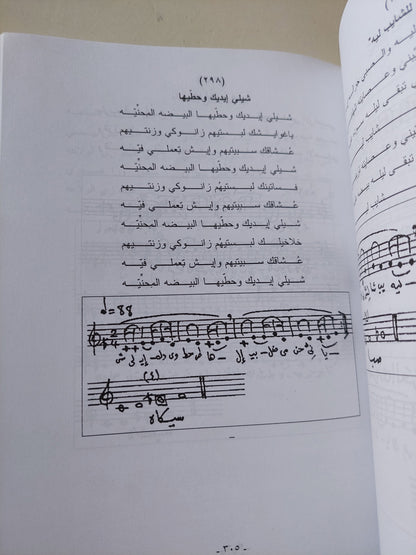 (٢٩٨)
شيلي إيديك وحطيها
شيلي إيديك وحطيها البيضه المحنيّه
ياغوايشك لبستيهم زانوكي وزنتيهم
عشاقك سبيتيهم وإيش تعملي فيّه
شيلي إيديك وحطيها البيضه المحنيّه
فساتينك لبستيهم زانوكي وزنتيهم
عشاقك سبيتيهم وإيش تعملي فيّه
شيلي إيديك وحطيها البيضه المحنيّه
خلاخيلك لبستيهم زانوكي وزنتيهم
عشاقك سبيتيهم وإيش تعملي فيّه
شيلي إيديك وحطيها البيضه المحنيّه
♩=88
2
4
(٤)
سيكاه
- ٣٠٥ -
للشايب ليه
صبا